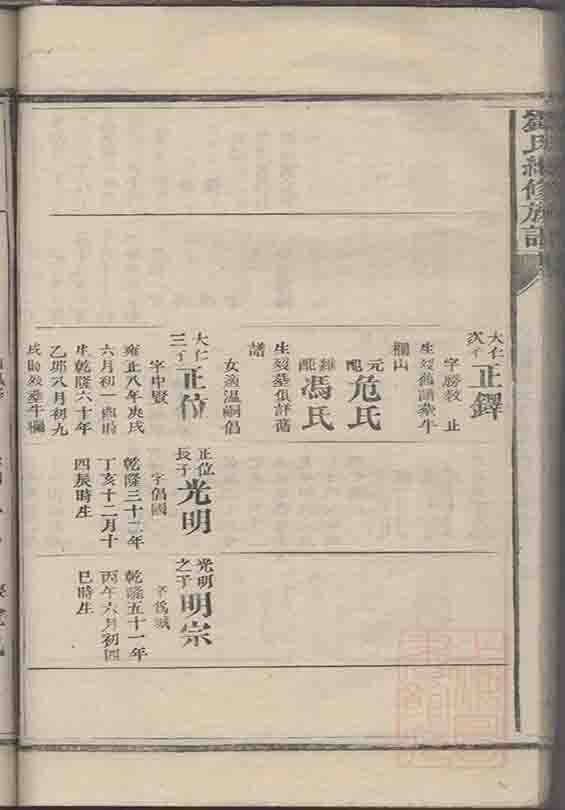 劉氏續修族譜
大仁
次子
正鐸
字勝教 止
生歿舊譜葬牛
欄山
元
配
危氏
繼
配
馮氏
生歿墓俱詳舊
譜
女適溫嗣倡
大仁
三子
正位
字中賢
雍正八年庚戌
六月初一酉時
生乾隆六十年
乙卯八月初九
戌時歿葬牛欄
正位
長子
光明
字倡國
乾隆三十二年
丁亥十二月十
四辰時生
光明
之子
明宗
字為
乾隆五十一年
丙午六月初四
巳時生